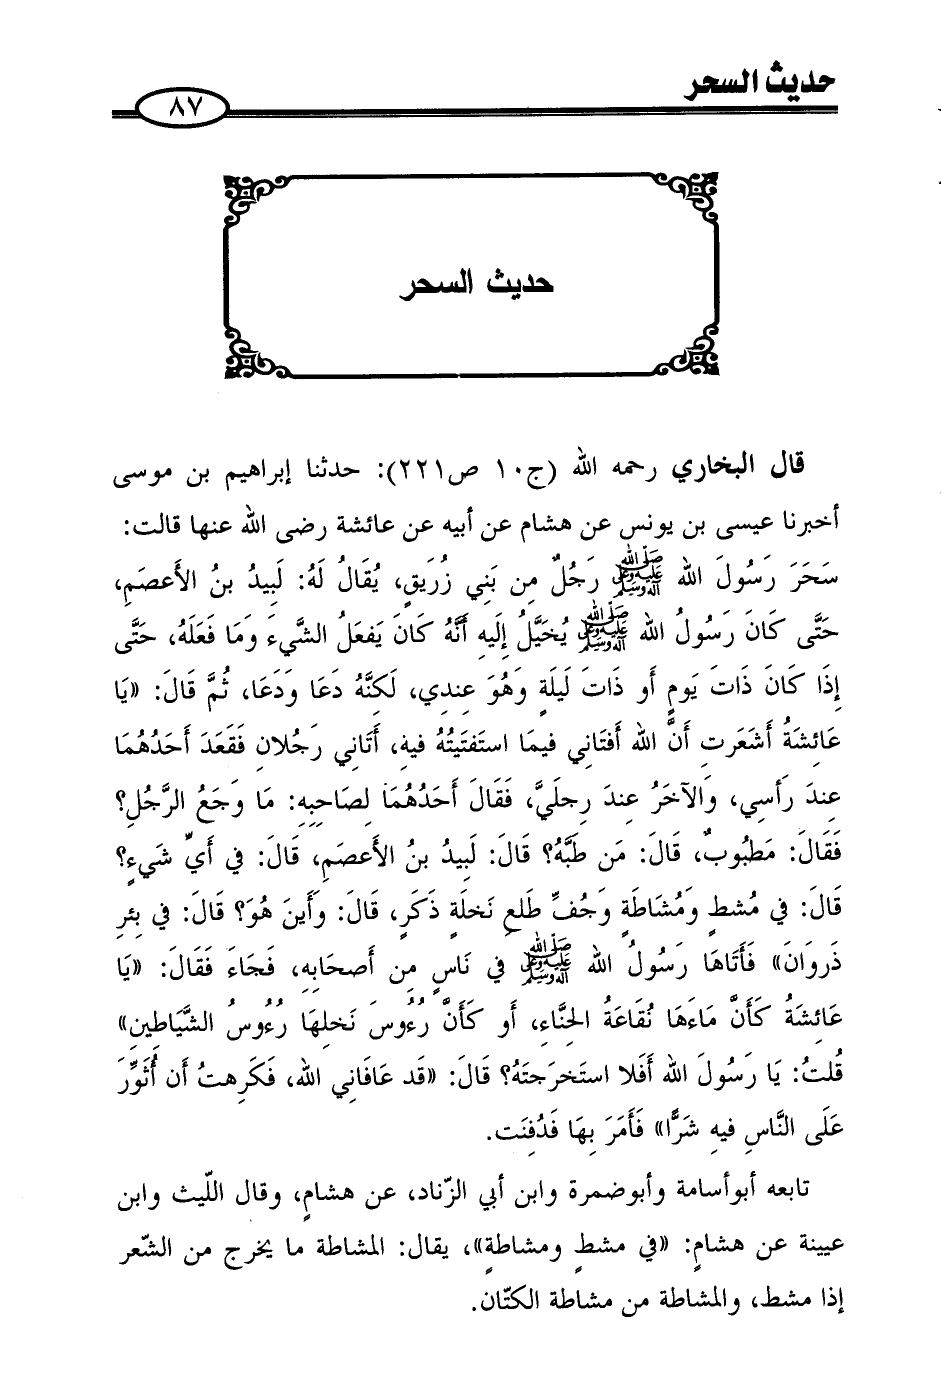 حديث السحر
٨٧
حديث السحر
قال البخاري رحمه الله (ج١٠ ص٢٢١): حدثنا إبراهيم بن موسى
أخبرنا عيسى بن يونس عن هشام عن أبيه عن عائشة رضى الله عنها قالت:
سَحَرَ رَسُولَ الله ﷺ رَجُلٌ مِن بَنِي زُرَيقٍ، يُقَالُ لَهُ: لَبِيدُ بنُ الأَعصَمِ،
حَتَّى كَانَ رَسُولُ الله ﷺ يُخَيَّلُ إِلَيهِ أَنَّهُ كَانَ يَفعَلُ الشَّيءَ وَمَا فَعَلَهُ، حَتَّى
إِذَا كَانَ ذَاتَ يَومٍ أَو ذَاتَ لَيلَةٍ وَهُوَ عِندِي، لَكِنَّهُ دَعَا وَدَعَا، ثُمَّ قَالَ: «يَا
عَائِشَةُ أَشَعَرتِ أَنَّ الله أَفتَانِي فِيمَا استَفتَيتُهُ فِيهِ، أَتَانِي رَجُلانِ فَقَعَدَ أَحَدُهُمَا
عِندَ رَأسِي، وَالآخَرُ عِندَ رِجلَيَّ، فَقَالَ أَحَدُهُمَا لِصَاحِبِهِ: مَا وَجَعُ الرَّجُلِ؟
فَقَالَ: مَطبُوبٌ، قَالَ: مَن طَبَّهُ؟ قَالَ: لَبِيدُ بنُ الأَعصَمِ، قَالَ: فِي أَيِّ شَيءٍ؟
قَالَ: فِي مُشطٍ وَمُشَاطَةٍ وَجُفِّ طَلعِ نَخلَةٍ ذَكَرٍ، قَالَ: وَأَينَ هُوَ؟ قَالَ: فِي بِئرِ
ذَروَانَ» فَأَتَاهَا رَسُولُ الله ﷺ فِي نَاسٍ مِن أَصحَابِهِ، فَجَاءَ فَقَالَ: «يَا
عَائِشَةُ كَأَنَّ مَاءَهَا نُقَاعَةُ الحِنَّاءِ، أَو كَأَنَّ رُءُوسَ نَخلِهَا رُءُوسُ الشَّيَاطِينِ»
قُلتُ: يَا رَسُولَ الله أَفَلا استَخرَجتَهُ؟ قَالَ: «قَد عَافَانِي الله، فَكَرِهتُ أَن أُثَوِّرَ
عَلَى النَّاسِ فِيهِ شَرًّا» فَأَمَرَ بِهَا فَدُفِنَت.
تابعه أبوأسامة وأبوضمرة وابن أبي الزّناد، عن هشامٍ، وقال اللّيث وابن
عيينة عن هشامٍ: «في مشطٍ ومشاطةٍ»، يقال: المشاطة ما يخرج من الشّعر
إذا مشط، والمشاطة من مشاطة الكتّان.